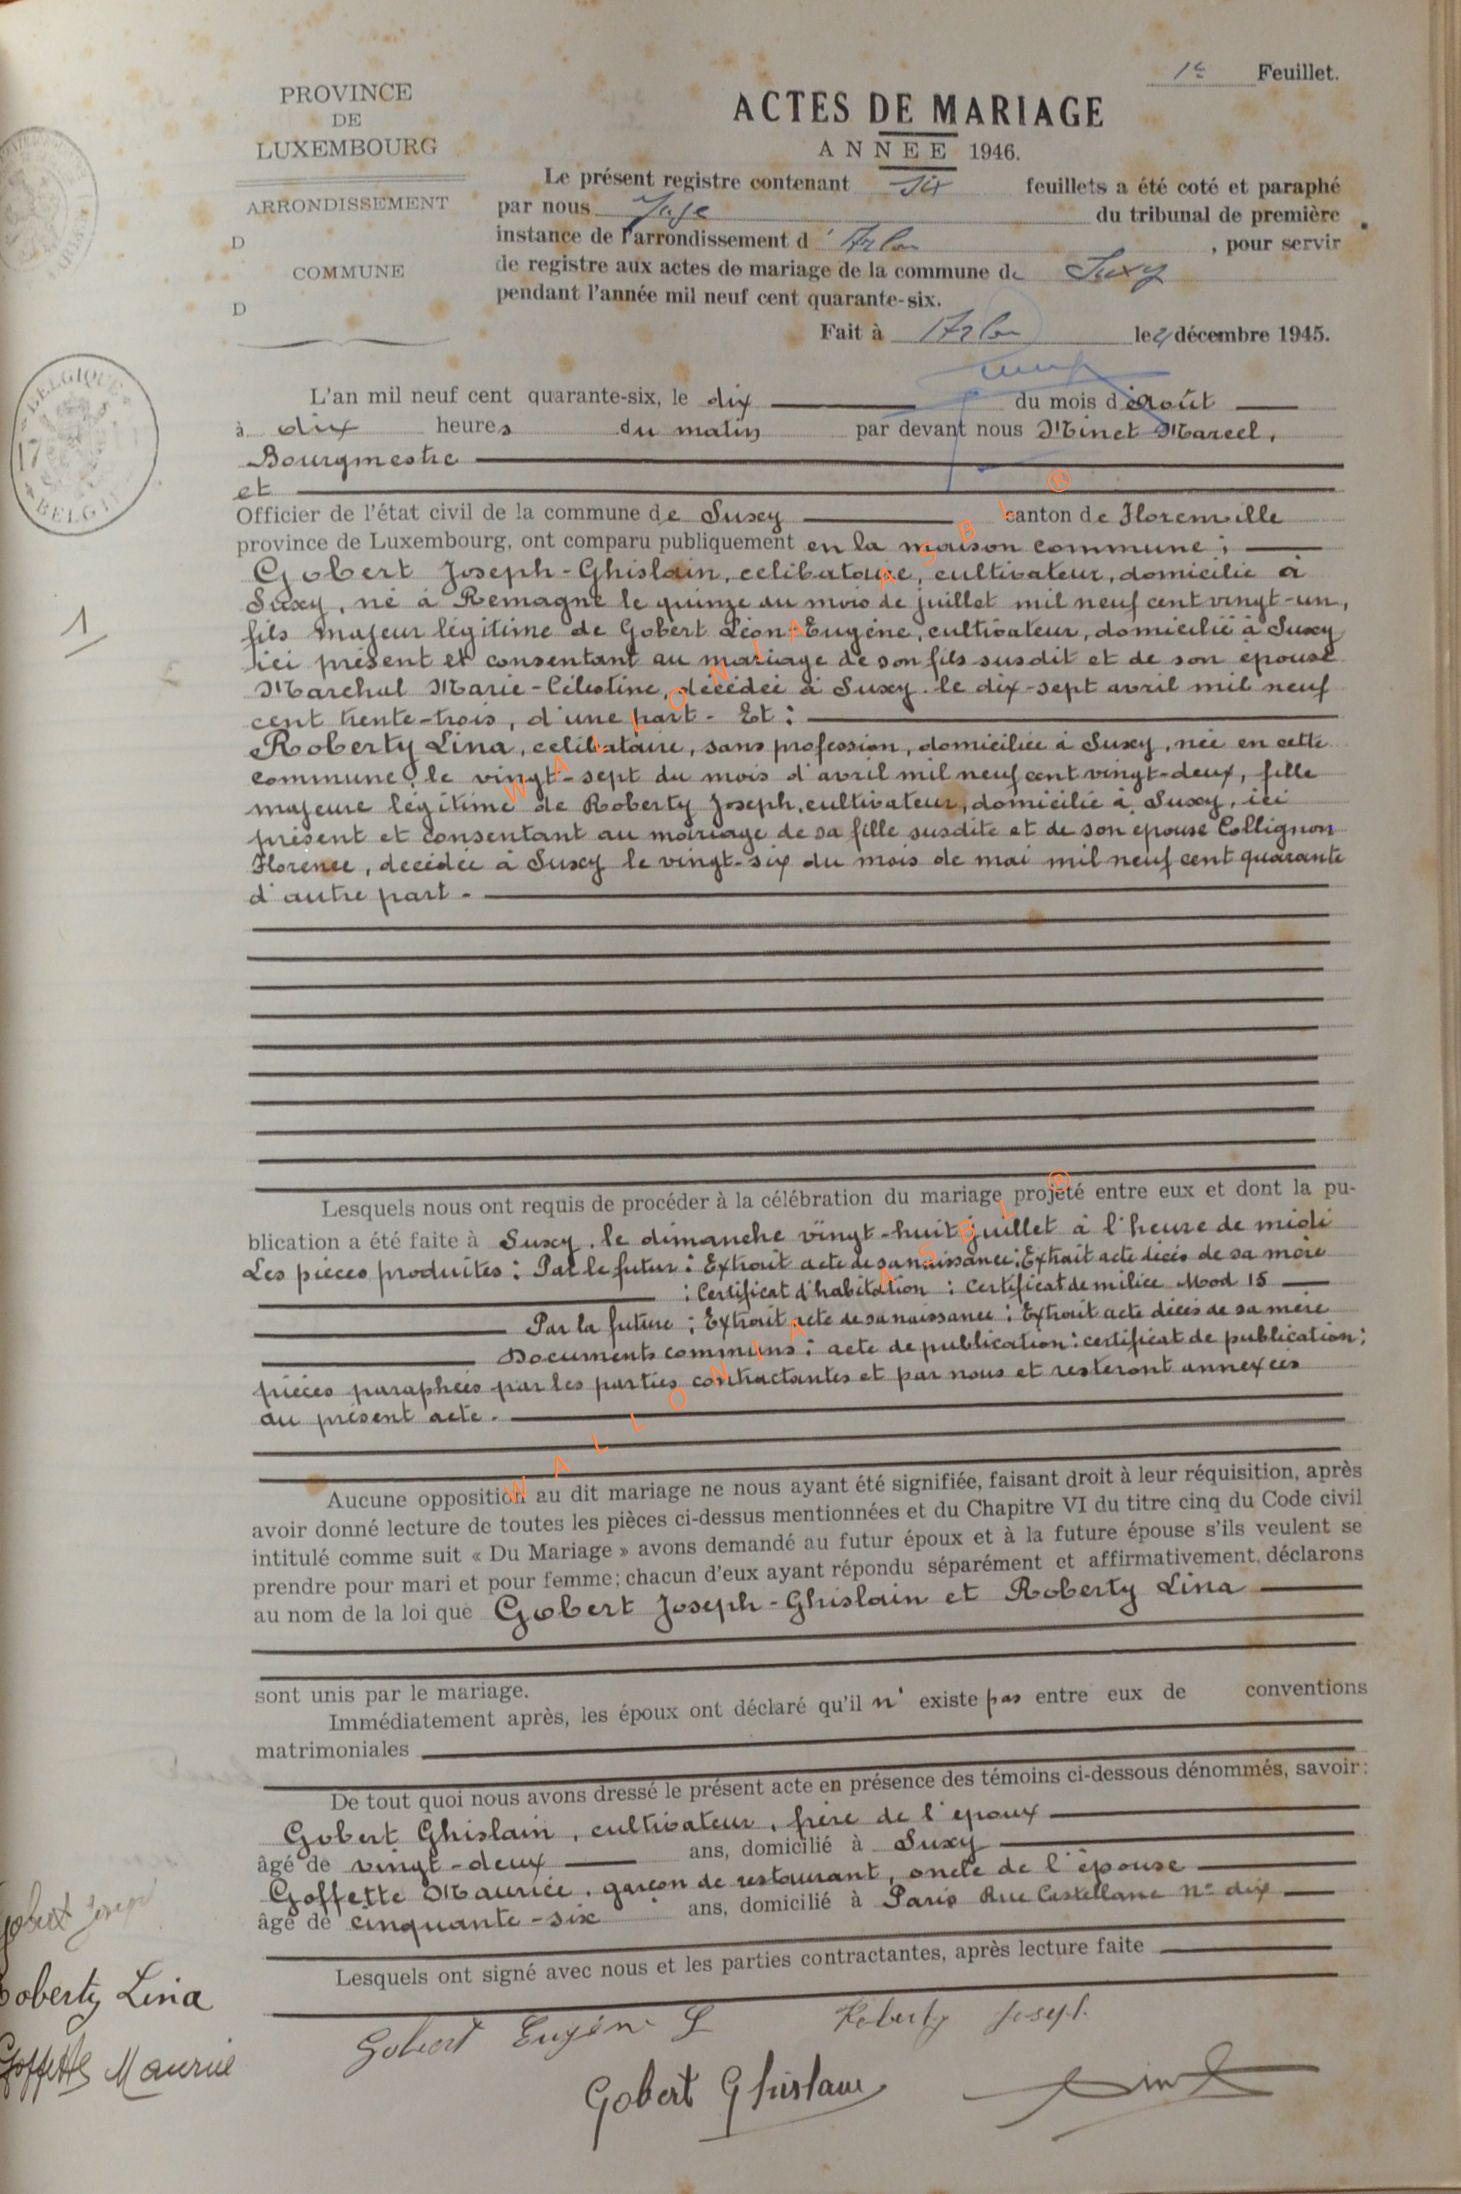 1e Feuillet.
PROVINCE
DE
LUXEMBOURG
ARRONDISSEMENT
D
COMMUNE
D
ACTES DE MARIAGE
ANNEE 1946.
Le présent registre contenant six feuillets a été coté et paraphé
par nous Juge du tribunal de première
instance de l'arrondissement d'Arlon, pour servir
de registre aux actes de mariage de la commune de Suxy
pendant l'année mil neuf cent quarante-six.
Fait à Arlon le 4 décembre 1945.
BELGIQUE
17
BELGIE
L'an mil neuf cent quarante-six, le dix du mois d'Août
à dix heures du matin par devant nous Minet Marcel,
Bourgmestre
et
Officier de l'état civil de la commune de Suxy canton de Florenville
province de Luxembourg, ont comparu publiquement en la maison commune :
1
Gobert Joseph-Ghislain, célibataire, cultivateur, domicilié à
Suxy, né à Remagne le quinze du mois de juillet mil neuf cent vingt-un,
fils majeur légitime de Gobert Léon Eugène, cultivateur, domicilié à Suxy
ici présent et consentant au mariage de son fils susdit et de son épouse
Marchal Marie-Célestine, décédée à Suxy le dix-sept avril mil neuf
cent trente-trois, d'une part. Et :
Roberty Lina, célibataire, sans profession, domiciliée à Suxy, née en cette
commune, le vingt-sept du mois d'avril mil neuf cent vingt-deux, fille
majeure légitime de Roberty Joseph, cultivateur, domicilié à Suxy, ici
présent et consentant au mariage de sa fille susdite et de son épouse Collignon
Florence, décédée à Suxy le vingt-six du mois de mai mil neuf cent quarante
d'autre part.
WALLONIA ASBL ®
Lesquels nous ont requis de procéder à la célébration du mariage projeté entre eux et dont la pu-
blication a été faite à Suxy, le dimanche vingt-huit juillet à l'heure de midi
Les pièces produites : Par le futur : Extrait acte de sa naissance : Extrait acte décès de sa mère
: Certificat d'habitation : Certificat de milice Mod 15
Par la future : Extrait acte de sa naissance : Extrait acte décès de sa mère
Documents communs : acte de publication : certificat de publication ;
pièces paraphées par les parties contractantes et par nous et resteront annexées
au présent acte.
WALLONIA ASBL ®
Aucune opposition au dit mariage ne nous ayant été signifiée, faisant droit à leur réquisition, après
avoir donné lecture de toutes les pièces ci-dessus mentionnées et du Chapitre VI du titre cinq du Code civil
intitulé comme suit « Du Mariage » avons demandé au futur époux et à la future épouse s'ils veulent se
prendre pour mari et pour femme; chacun d'eux ayant répondu séparément et affirmativement, déclarons
au nom de la loi que Gobert Joseph-Ghislain et Roberty Lina
sont unis par le mariage.
Immédiatement après, les époux ont déclaré qu'il n'existe pas entre eux de conventions
matrimoniales
De tout quoi nous avons dressé le présent acte en présence des témoins ci-dessous dénommés, savoir :
Gobert Ghislain, cultivateur, frère de l'époux
âgé de vingt-deux ans, domicilié à Suxy
Goffette Maurice, garçon de restaurant, oncle de l'épouse
âgé de cinquante-six ans, domicilié à Paris Rue Castellane No dix
Lesquels ont signé avec nous et les parties contractantes, après lecture faite
Gobert Joseph
Roberty Lina
Goffette Maurice
Gobert Eugène L
Roberty Joseph
Gobert Ghislain